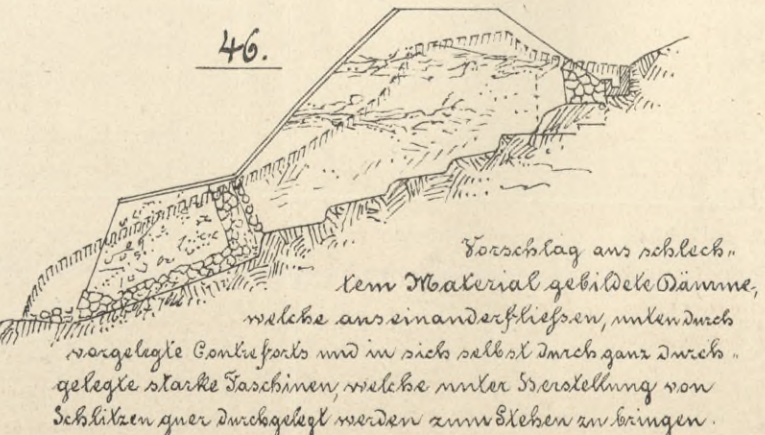 46.
Vorschlag aus schlech„
tem Material gebildete Dämme,
welche auseinanderfließen, unten durch
vorgelegte Contreforts und in sich selbst durch ganz durch„
gelegte starke Faschinen, welche unter Herstellung von
Schlitzen quer durchgelegt werden zum Stehen zu bringen.